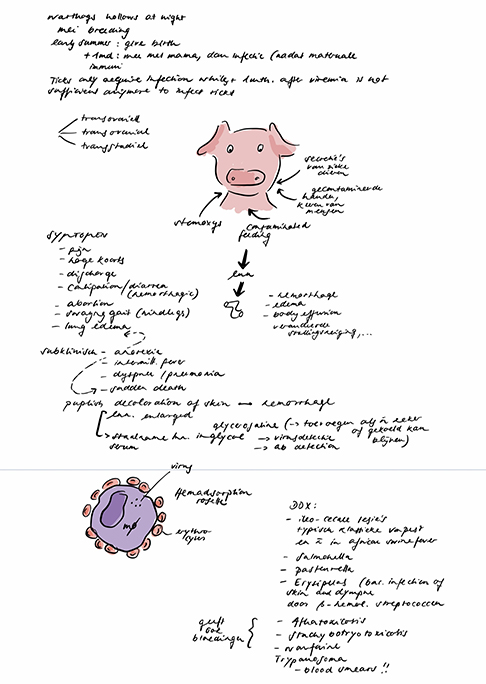 warthogs hollows at night
mei breeding
early summer: give birth
+ 1md: mee met mama, dan infectie (nadat maternale
immuni
Ticks only acquire infection while < 1mth. after viremia is not
sufficient anymore to infect ticks
transovarieel
transovarial
transstadial
secretie's
van zieke
dieren
gecontamineerde
handen,
kleren van
mensen
stomoxys
contaminated
feeding
symptomen
- pijn
- hoge koorts
- discharge
- constipation/diarree
(hemorrhagic)
- abortion
- swaying gait (hindlegs)
- lung edema
lnn
- hemorrhage
- edema
- body effusion
veranderde
stollingsneiging,...
subklinisch - anorexie
- intermitt. fever
- dyspnee / pneumonia
- sudden death
purplish decoloration of skin → hemorrhage
lnn. enlarged
glycerosaline (→ toevoegen als
gekoeld kan
blijven)
→ virusdetectie
serum → ab detection
virus
Hemadsorption
rosette
mφ
erythro-
cytes
DDX:
- ileo-cecale lesie's
typisch klassieke varkenspest
en in african swine fever
- salmonella
- pasteurella
- Erysipelas (bac. infection of
skin and lymph
door β-hemol. streptococcen
geeft
ook
bloedingen
- Aflatoxicosis
- stachybotryotoxicosis
- warfarine
Trypanosoma
- blood smears !!